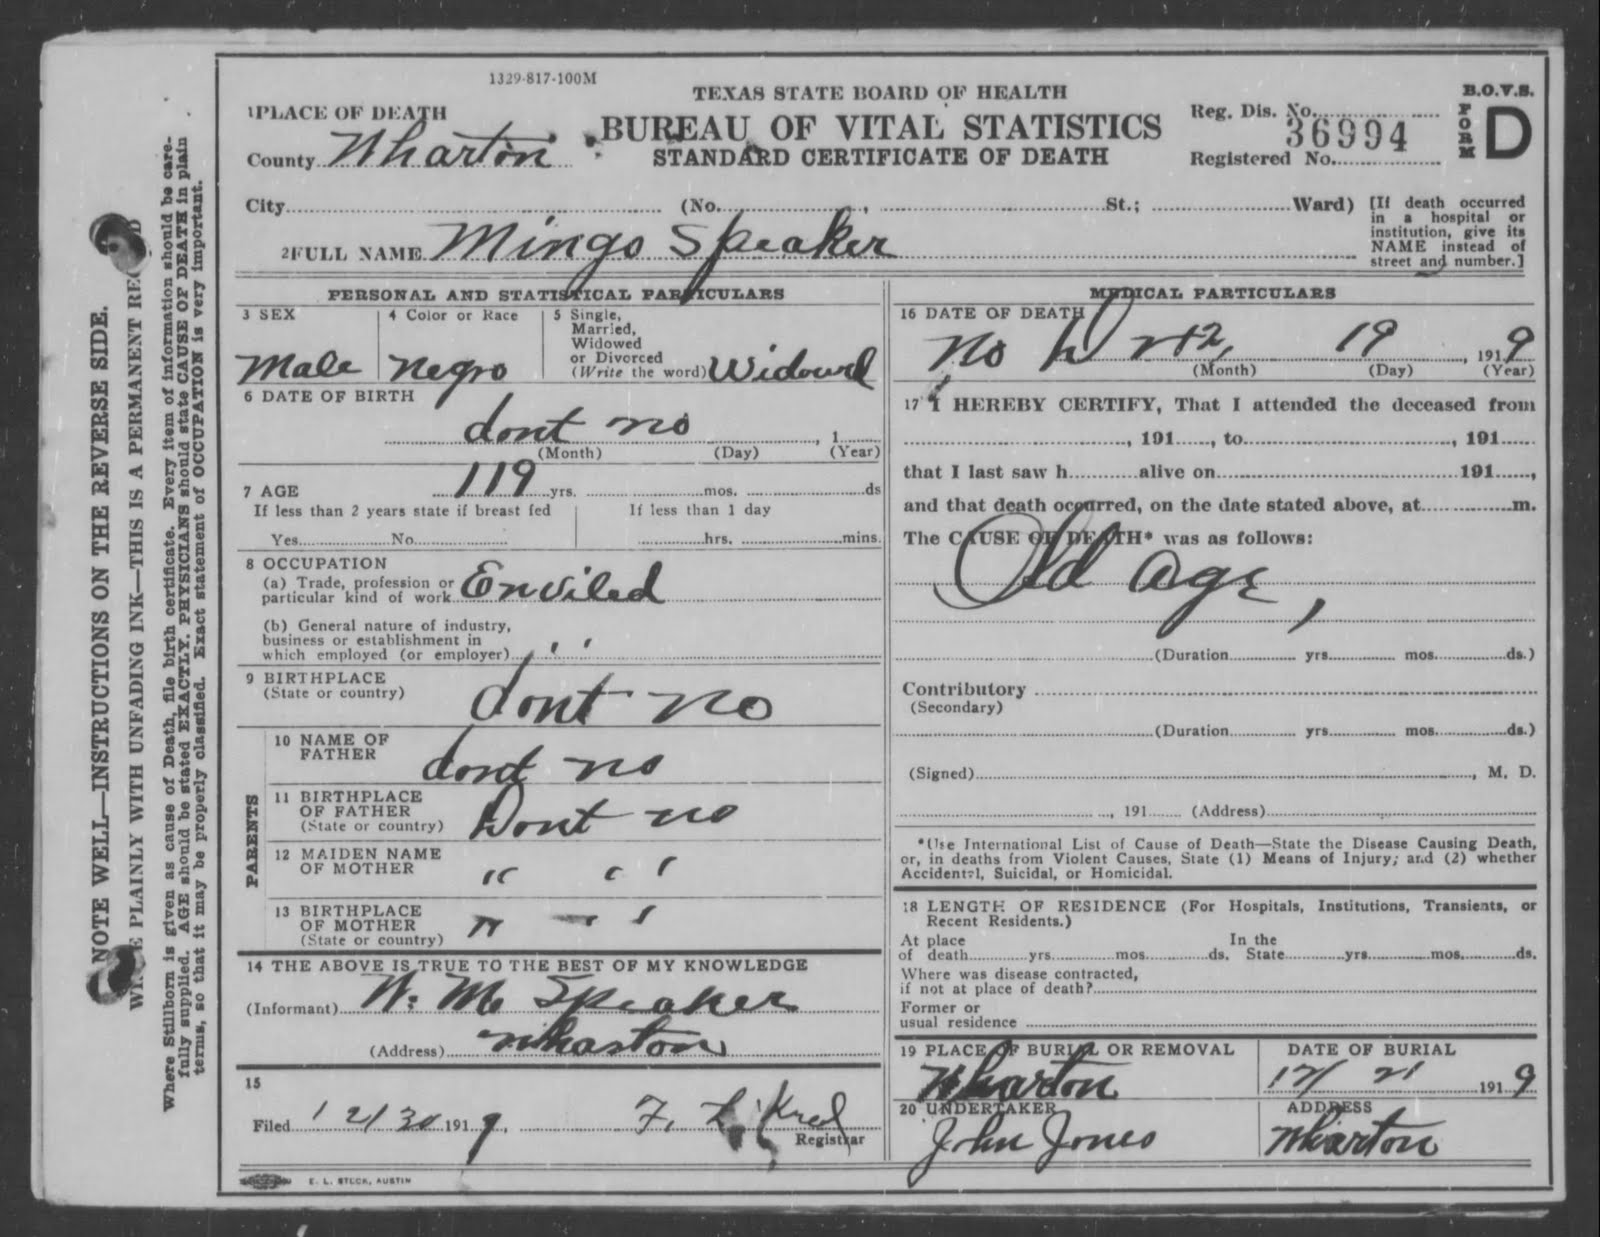 1329-817-100M
TEXAS STATE BOARD OF HEALTH
BUREAU OF VITAL STATISTICS
STANDARD CERTIFICATE OF DEATH
B.O.V.S.
FORM D
Reg. Dis. No.
36994
Registered No.
1 PLACE OF DEATH
County Wharton
City (No. , St.; Ward)
[If death occurred
in a hospital or
institution, give its
NAME instead of
street and number.]
2 FULL NAME Mingo Speaker
PERSONAL AND STATISTICAL PARTICULARS
3 SEX
Male
4 Color or Race
Negro
5 Single,
Married,
Widowed
or Divorced
(Write the word) Widowed
6 DATE OF BIRTH
dont no , 1
(Month) (Day) (Year)
7 AGE 119 yrs. mos. ds
If less than 2 years state if breast fed
Yes No
If less than 1 day
hrs. mins.
8 OCCUPATION
(a) Trade, profession or
particular kind of work Enviled
(b) General nature of industry,
business or establishment in
which employed (or employer) ' '
9 BIRTHPLACE
(State or country) dont no
PARENTS
10 NAME OF
FATHER dont no
11 BIRTHPLACE
OF FATHER
(State or country) Dont no
12 MAIDEN NAME
OF MOTHER " "
13 BIRTHPLACE
OF MOTHER
(State or country) " "
14 THE ABOVE IS TRUE TO THE BEST OF MY KNOWLEDGE
(Informant) W. M. Speaker
(Address) Wharton
15
Filed 12/30 1919, F. L. Registrar
E. L. STECK, AUSTIN
MEDICAL PARTICULARS
16 DATE OF DEATH
19, 1919
(Month) (Day) (Year)
17 I HEREBY CERTIFY, That I attended the deceased from
, 191 , to , 191
that I last saw h alive on 191 ,
and that death occurred, on the date stated above, at m.
The CAUSE OF DEATH* was as follows:
Old age,
(Duration yrs. mos. ds.)
Contributory
(Secondary)
(Duration yrs. mos. ds.)
(Signed) , M. D.
, 191 (Address)
*Use International List of Cause of Death—State the Disease Causing Death,
or, in deaths from Violent Causes, State (1) Means of Injury; and (2) whether
Accidental, Suicidal, or Homicidal.
18 LENGTH OF RESIDENCE (For Hospitals, Institutions, Transients, or
Recent Residents.)
At place In the
of death yrs. mos. ds. State yrs. mos. ds.
Where was disease contracted,
if not at place of death?
Former or
usual residence
19 PLACE OF BURIAL OR REMOVAL
Wharton
DATE OF BURIAL
12/ 21 1919
20 UNDERTAKER
John Jones
ADDRESS
Wharton
NOTE WELL—INSTRUCTIONS ON THE REVERSE SIDE.
PLAINLY WITH UNFADING INK—THIS IS A PERMANENT
Where Stillborn is given as cause of Death, file birth certificate. Every item of information should be care-
fully supplied. AGE should be stated EXACTLY. PHYSICIANS should state CAUSE OF DEATH in plain
terms, so that it may be properly classified. Exact statement of OCCUPATION is very important.